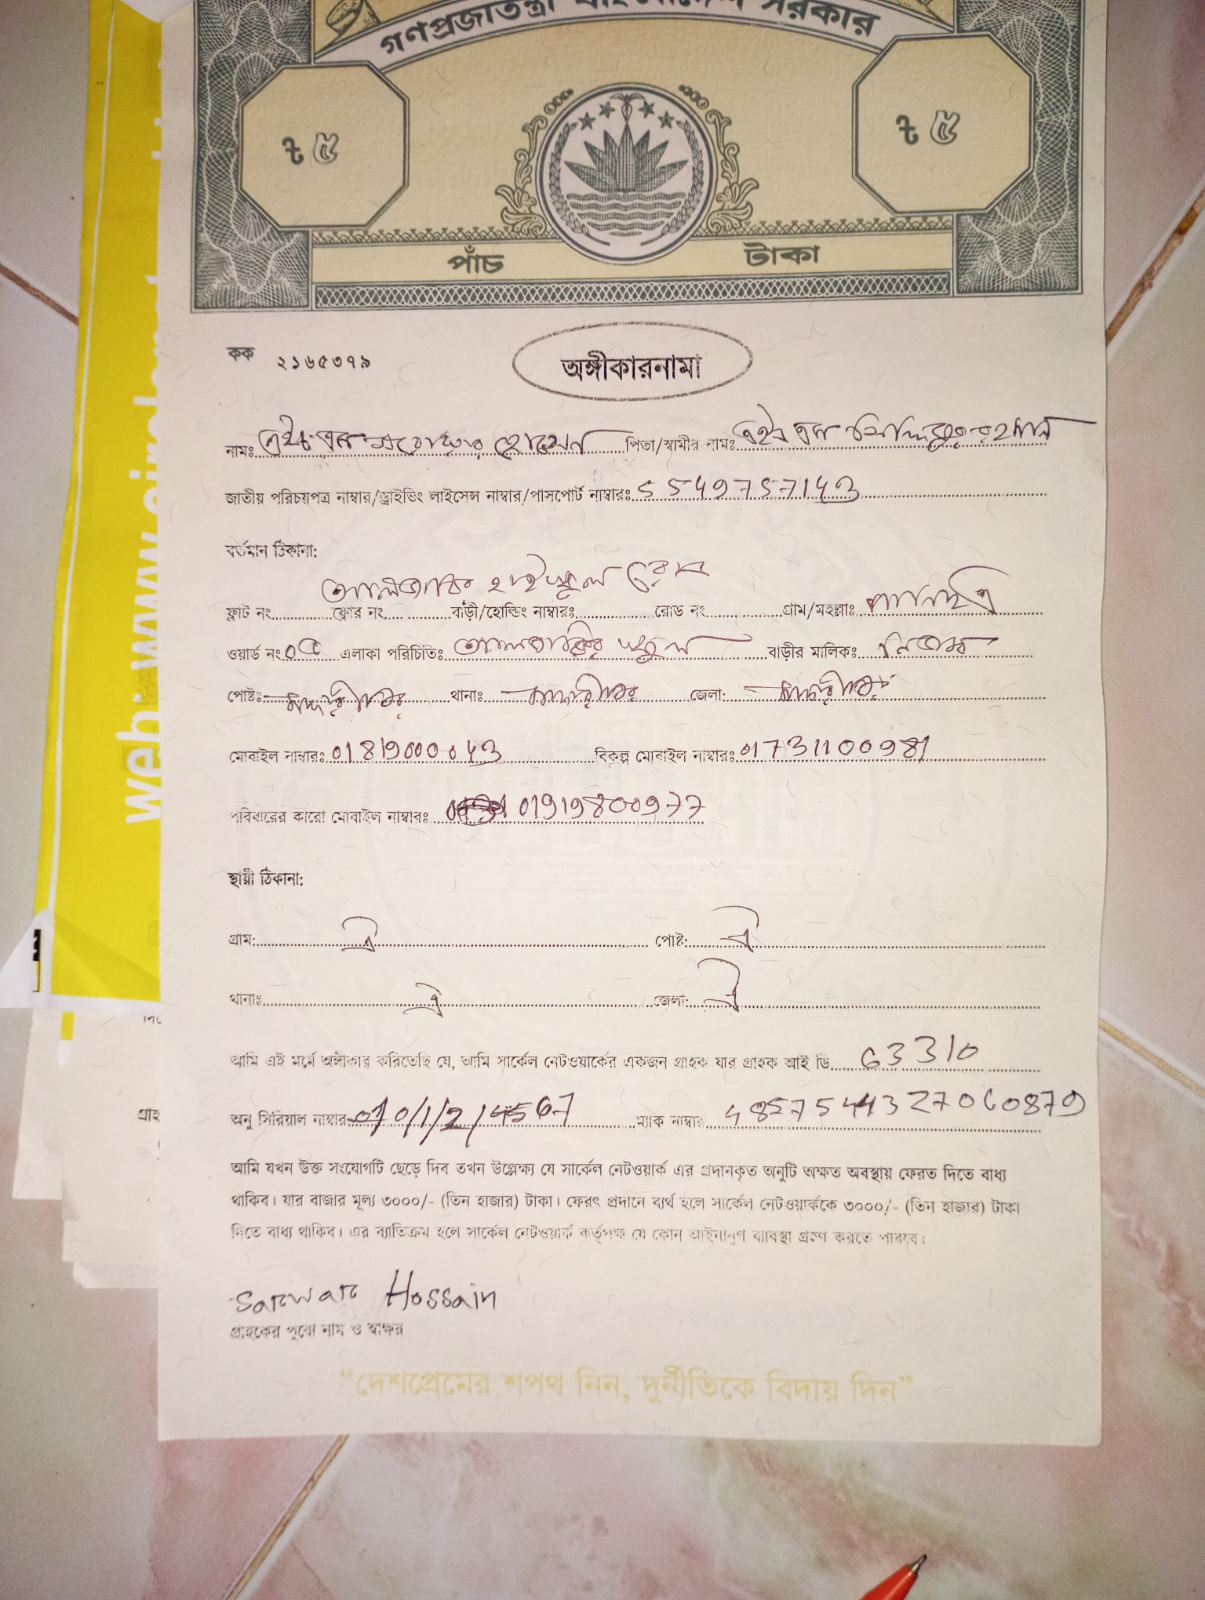 গণপ্রজাতন্ত্রী বাংলাদেশ সরকার
৳ ৫ ৳ ৫
পাঁচ টাকা
কক ২১৬৫৩৭৯
অঙ্গীকারনামা
নামঃ এইচ এম সরোয়ার হোসেন পিতা/স্বামীর নামঃ এইচ এম
জাতীয় পরিচয়পত্র নাম্বার/ড্রাইভিং লাইসেন্স নাম্বার/পাসপোর্ট নাম্বারঃ 5549757143
বর্তমান ঠিকানা:
হাইস্কুল রোড
ফ্লাট নং ফ্লোর নং বাড়ী/হোল্ডিং নাম্বারঃ রোড নং গ্রাম/মহল্লাঃ
ওয়ার্ড নং ০৫ এলাকা পরিচিতিঃ স্কুল বাড়ীর মালিকঃ নিজস্ব
পোষ্টঃ মাদারীপুর থানাঃ মাদারীপুর জেলা: মাদারীপুর
মোবাইল নাম্বারঃ 01819000043 বিকল্প মোবাইল নাম্বারঃ 01731100981
পরিবারের কারো মোবাইল নাম্বারঃ 01919800977
স্থায়ী ঠিকানা:
গ্রাম: ঐ পোষ্ট: ঐ
থানাঃ ঐ জেলা: ঐ
আমি এই মর্মে অঙ্গীকার করিতেছি যে, আমি সার্কেল নেটওয়ার্কের একজন গ্রাহক যার গ্রাহক আই ডি 63310
অনু সিরিয়াল নাম্বার 0/1/2/4567 ম্যাক নাম্বার 48575443270C0879
আমি যখন উক্ত সংযোগটি ছেড়ে দিব তখন উল্লেক্ষ্য যে সার্কেল নেটওয়ার্ক এর প্রদানকৃত অনুটি অক্ষত অবস্থায় ফেরত দিতে বাধ্য
থাকিব। যার বাজার মূল্য ৩০০০/- (তিন হাজার) টাকা। ফেরৎ প্রদানে ব্যর্থ হলে সার্কেল নেটওয়ার্ককে ৩০০০/- (তিন হাজার) টাকা
দিতে বাধ্য থাকিব। এর ব্যাতিক্রম হলে সার্কেল নেটওয়ার্ক কর্তৃপক্ষ যে কোন আইনানুগ ব্যাবস্থা গ্রহণ করতে পারবে।
Sarwar Hossain
গ্রাহকের পুরো নাম ও স্বাক্ষর
“দেশপ্রেমের শপথ নিন, দুর্নীতিকে বিদায় দিন”
web: www.circle
গ্রাহ